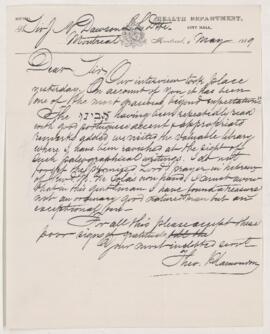 HEALTH DEPARTMENT,
CITY HALL,
Sir J. W. Dawson
Montreal May 1889
Dear Sir
Our interview took place
yesterday. On account of you it has been
one of the most gracious beyond expectations
The having been repeatedly read
with good portuguese accent & appropriate
remarks added us visited the valuable library
where I have been ravished at the sight of
such paleographical writings. I did not
forget the promised Lord's prayer in hebrew
of new
that in this gentleman I have found a treasure
not an ordinary good natured man but an
exceptional one
For all this please accept these
poor signs of gratitude
Your most indebted servt
Theo.